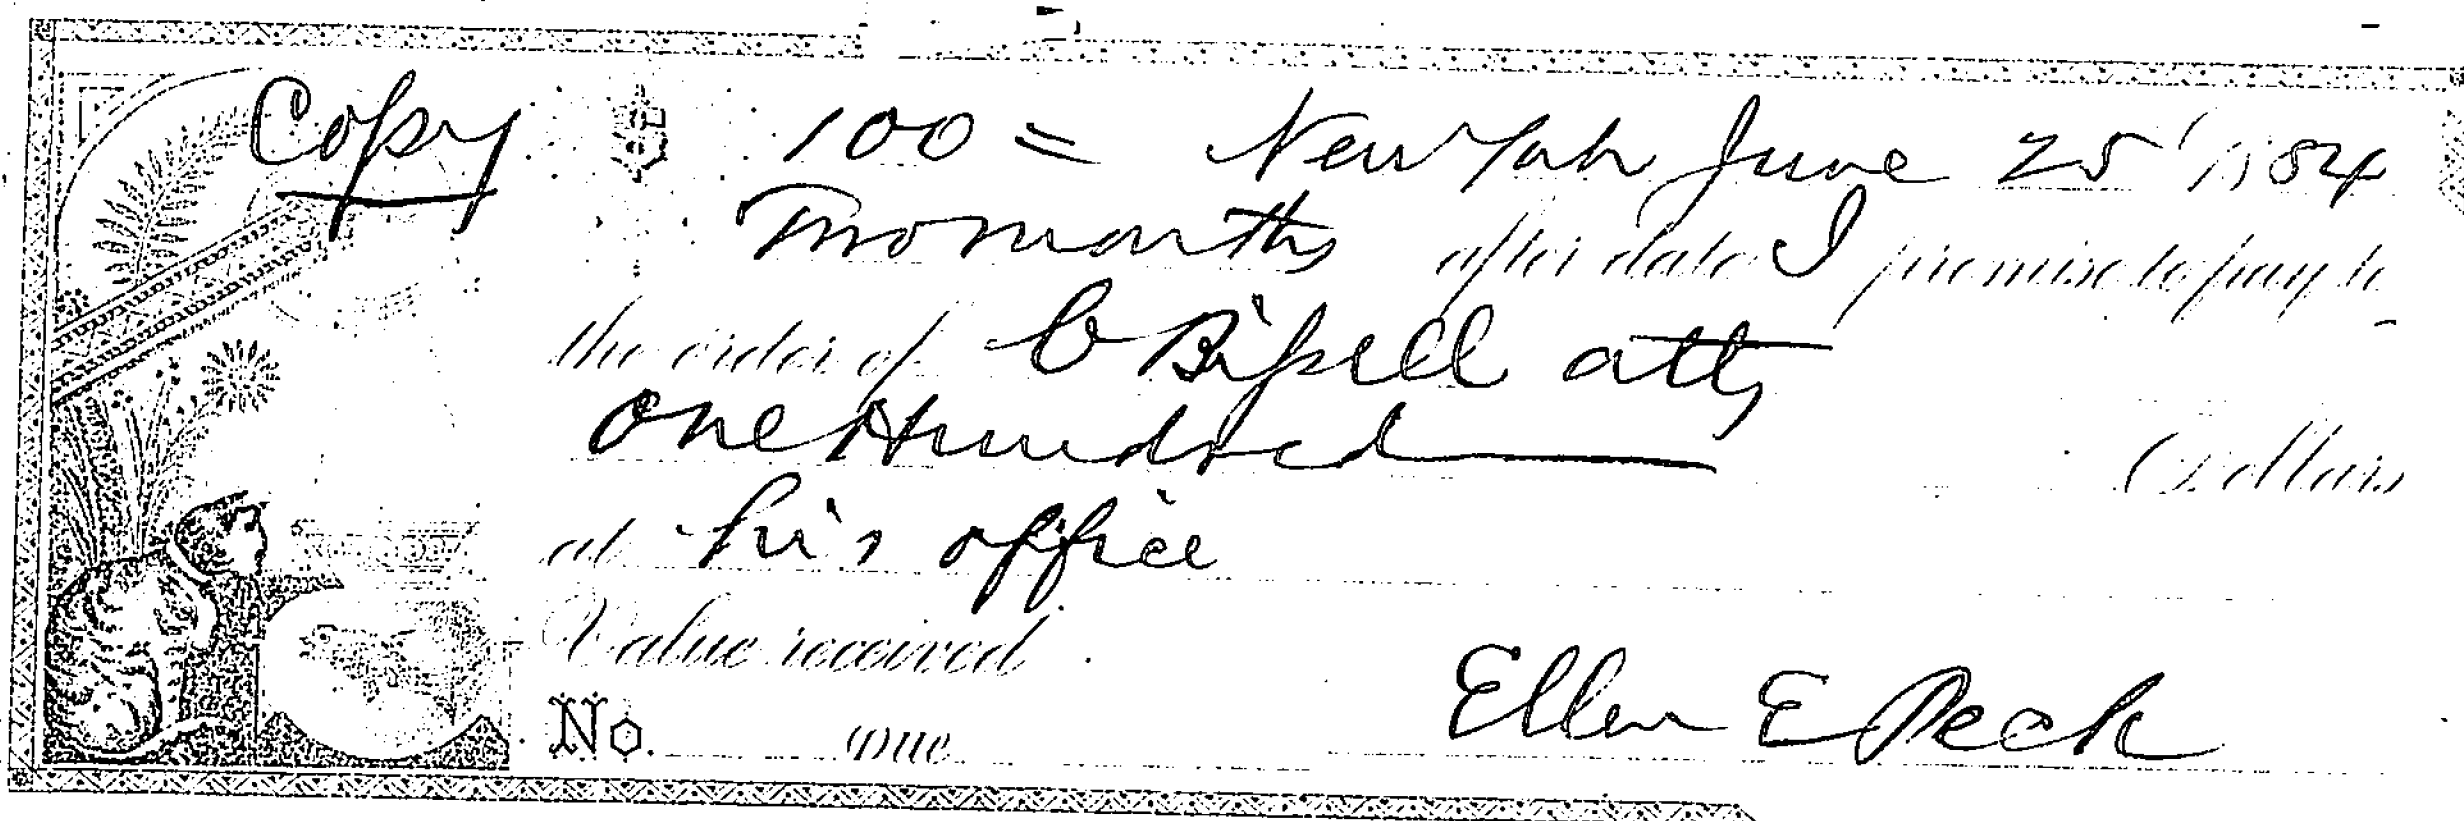 Copy $ 100 = New York June 25 1884
Two months after date I promise to pay to
the order of C Bissell atty
One Hundred Dollars
at his office
Value received
No. Due Ellen E Peck